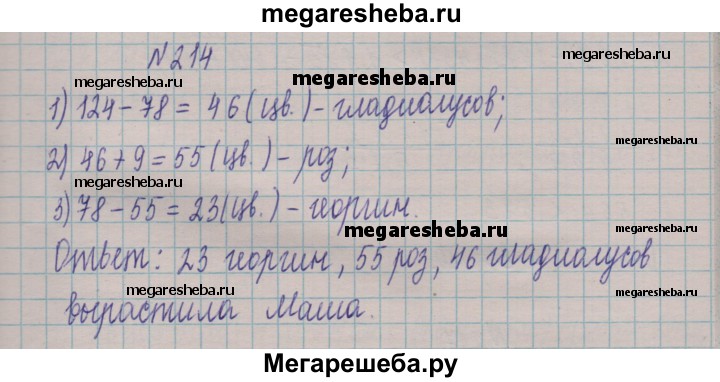 megaresheba.ru
№214
megaresheba.ru
megaresheba.ru
1) 124 - 78 = 46 (цв.) - гладиолусов;
megaresheba.ru
2) 46 + 9 = 55 (цв.) - роз;
megaresheba.ru
3) 78 - 55 = 23 (цв.) - георгин.
megaresheba.ru
Ответ: 23 георгин, 55 роз, 46 гладиолусов
megaresheba.ru
megaresheba.ru
вырастила Маша.
Мегарешеба.ру